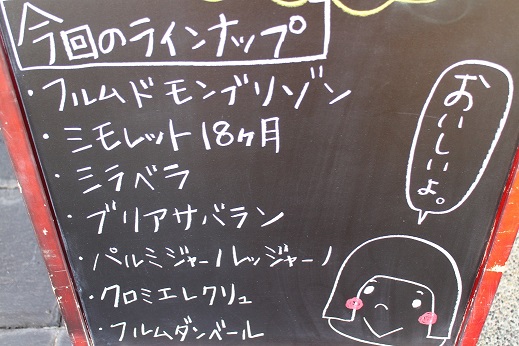 今回のラインナップ
・フルムドモンブリゾン
・ミモレット18ヶ月
・ミラベラ
・ブリアサバラン
・パルミジャーノレッジャーノ
・クロミエレクリュ
・フルムダンベール
おいしいよ。